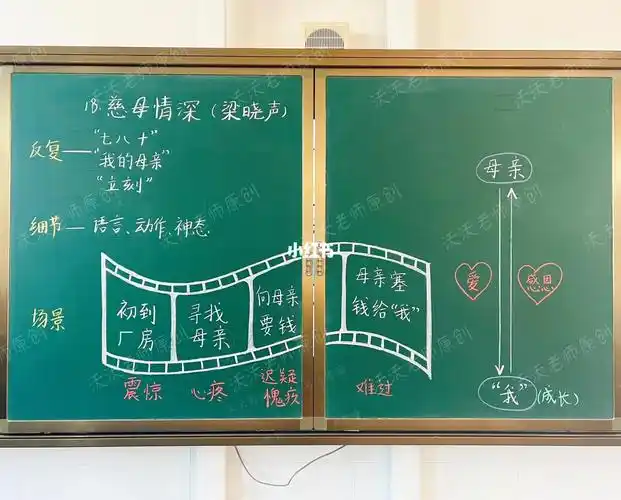 18.慈母情深(梁晓声)
反复——"七八十"
"我的母亲"
"立刻"
细节——语言、动作、神态
场景
初到
厂房
寻找
母亲
向母亲
要钱
母亲塞
钱给"我"
震惊
心疼
迟疑
愧疚
难过
母亲
爱
感恩
"我"(成长)
小红书
天天老师原创